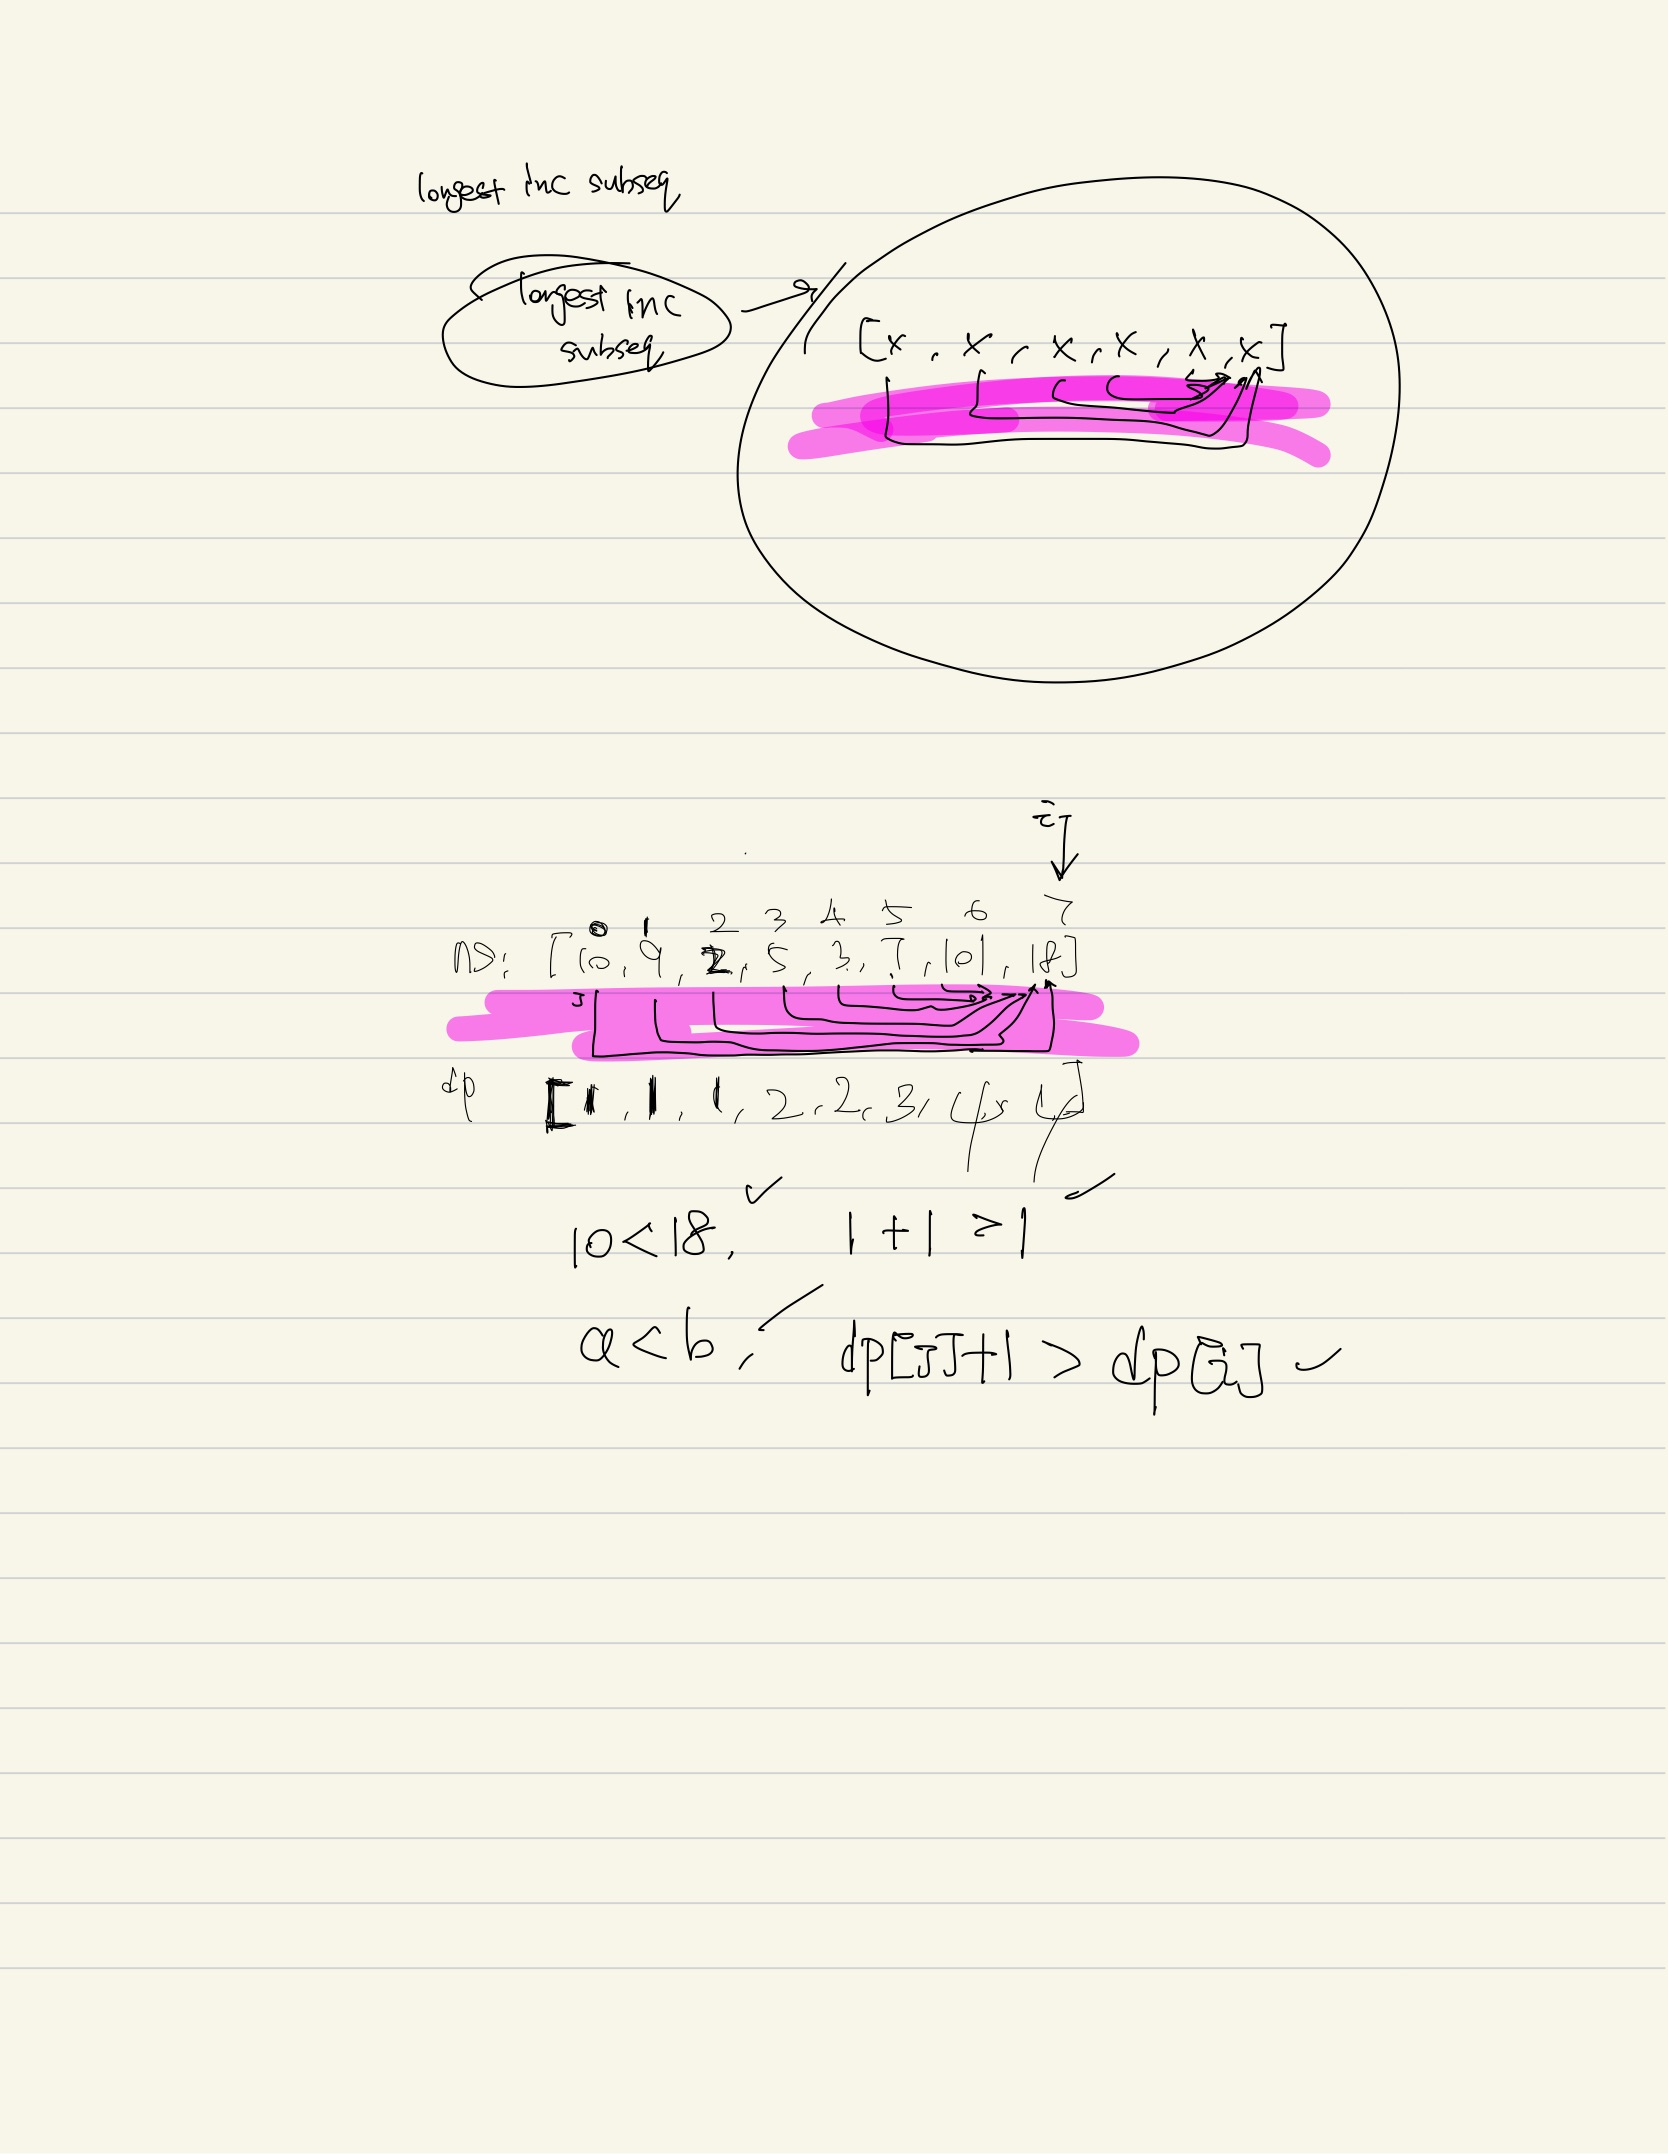 longest inc subseq
longest inc
subseq
[x, x, x, x, x, x]
i
0 1 2 3 4 5 6 7
ns: [10, 9, 2, 5, 3, 7, 101, 18]
J
dp [1, 1, 1, 2, 2, 3, 4, 4]
10 < 18, ✓ 1 + 1 > 1 ✓
a < b, ✓ dp[J]+1 > dp[i] ✓